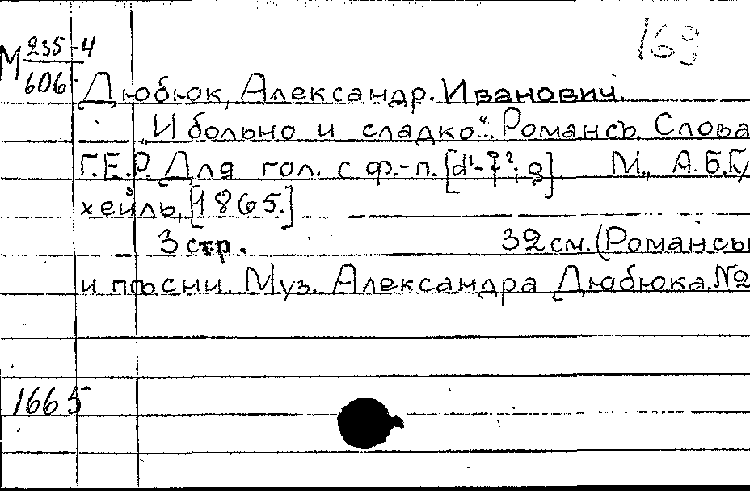 169
М 235-4
606
Дюбюк, Александр. Иванович.
„И больно и сладко“. Романсъ Слова
Г.Е.Р. Для гол. с ф.-п. М., А.Б.Гу
хейль, [1865.]
3 стр. 32 см. (Романсы
и пѣсни. Муз. Александра Дюбюка. №2
1665